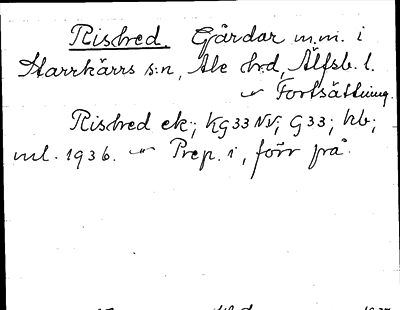 Risbred. Gårdar m.m. i
Starrkärrs s:n, Ale hrd, Älfsb. l.
" Fortsättning.
Risbred ek; KG33NV; G33; hb;
ml. 1936. " Prep. i, förr på.